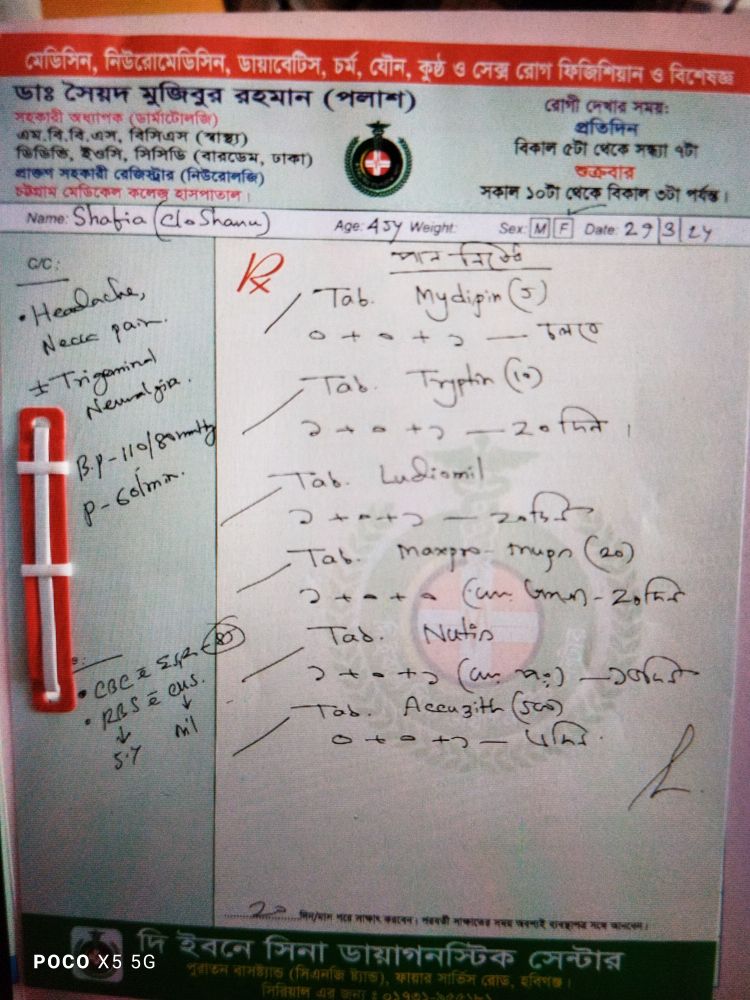 মেডিসিন, নিউরোমেডিসিন, ডায়াবেটিস, চর্ম, যৌন, কুষ্ঠ ও সেক্স রোগ ফিজিশিয়ান ও বিশেষজ্ঞ
ডাঃ সৈয়দ মুজিবুর রহমান (পলাশ)
সহকারী অধ্যাপক (ডার্মাটোলজি)
এম.বি.বি.এস, বিসিএস (স্বাস্থ্য)
ডিডিভি, ইওসি, সিসিডি (বারডেম, ঢাকা)
প্রাক্তন সহকারী রেজিস্ট্রার (নিউরোলজি)
চট্টগ্রাম মেডিকেল কলেজ হাসপাতাল।
রোগী দেখার সময়:
প্রতিদিন
বিকাল ৫টা থেকে সন্ধ্যা ৭টা
শুক্রবার
সকাল ১০টা থেকে বিকাল ৩টা পর্যন্ত।
Name: Shafia (C/o Shanu) Age: 45y Weight: Sex: M F Date: 29/3/24
C/C:
• Headache,
Neck pain.
± Trigeminal
Neuralgia.
B.P-110/80mmHg
P-60/min.
• CBC
• RBS
↓ ↓
5.7 nil
Rx
Tab. Mydipin (5)
০ + ০ + ১ — চলবে
Tab. Tryptin (10)
১ + ০ + ১ — ২০ দিন।
Tab. Ludiomil
১ + ০ + ১ — ২০ দিন
Tab. Maxpro-mups (20)
১ + ০ + ০ — ২০ দিন
Tab.
১ + ০ + ১ — ১০ দিন
Tab. Accuzith (500)
০ + ০ + ১ — দিন.
২০ দিন/মাস পরে সাক্ষাৎ করবেন। পরবর্তী সাক্ষাতের সময় অবশ্যই ব্যবস্থাপত্র সাথে আনবেন।
দি ইবনে সিনা ডায়াগনস্টিক সেন্টার
পুরাতন বাসষ্ট্যান্ড (সিএনজি ষ্ট্যান্ড), ফায়ার সার্ভিস রোড, হবিগঞ্জ।
সিরিয়াল এর জন্য :
POCO X5 5G